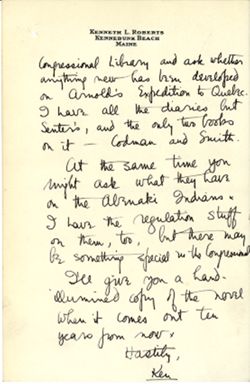 KENNETH L. ROBERTS
KENNEBUNK BEACH
MAINE
Congressional Library and ask whether
anything new has been developed
on Arnold's Expedition to Quebec.
I have all the diaries but
Senter's, and the only two books
on it – Codman and Smith.
At the same time you
might ask what they have
on the Abenaki Indians.
I have the regulation stuff
on them, too, but there may
be something special in the Congressional
I'll give you a hand-
illumined copy of the novel
when it comes out ten
years from now.
Hastily,
Ken